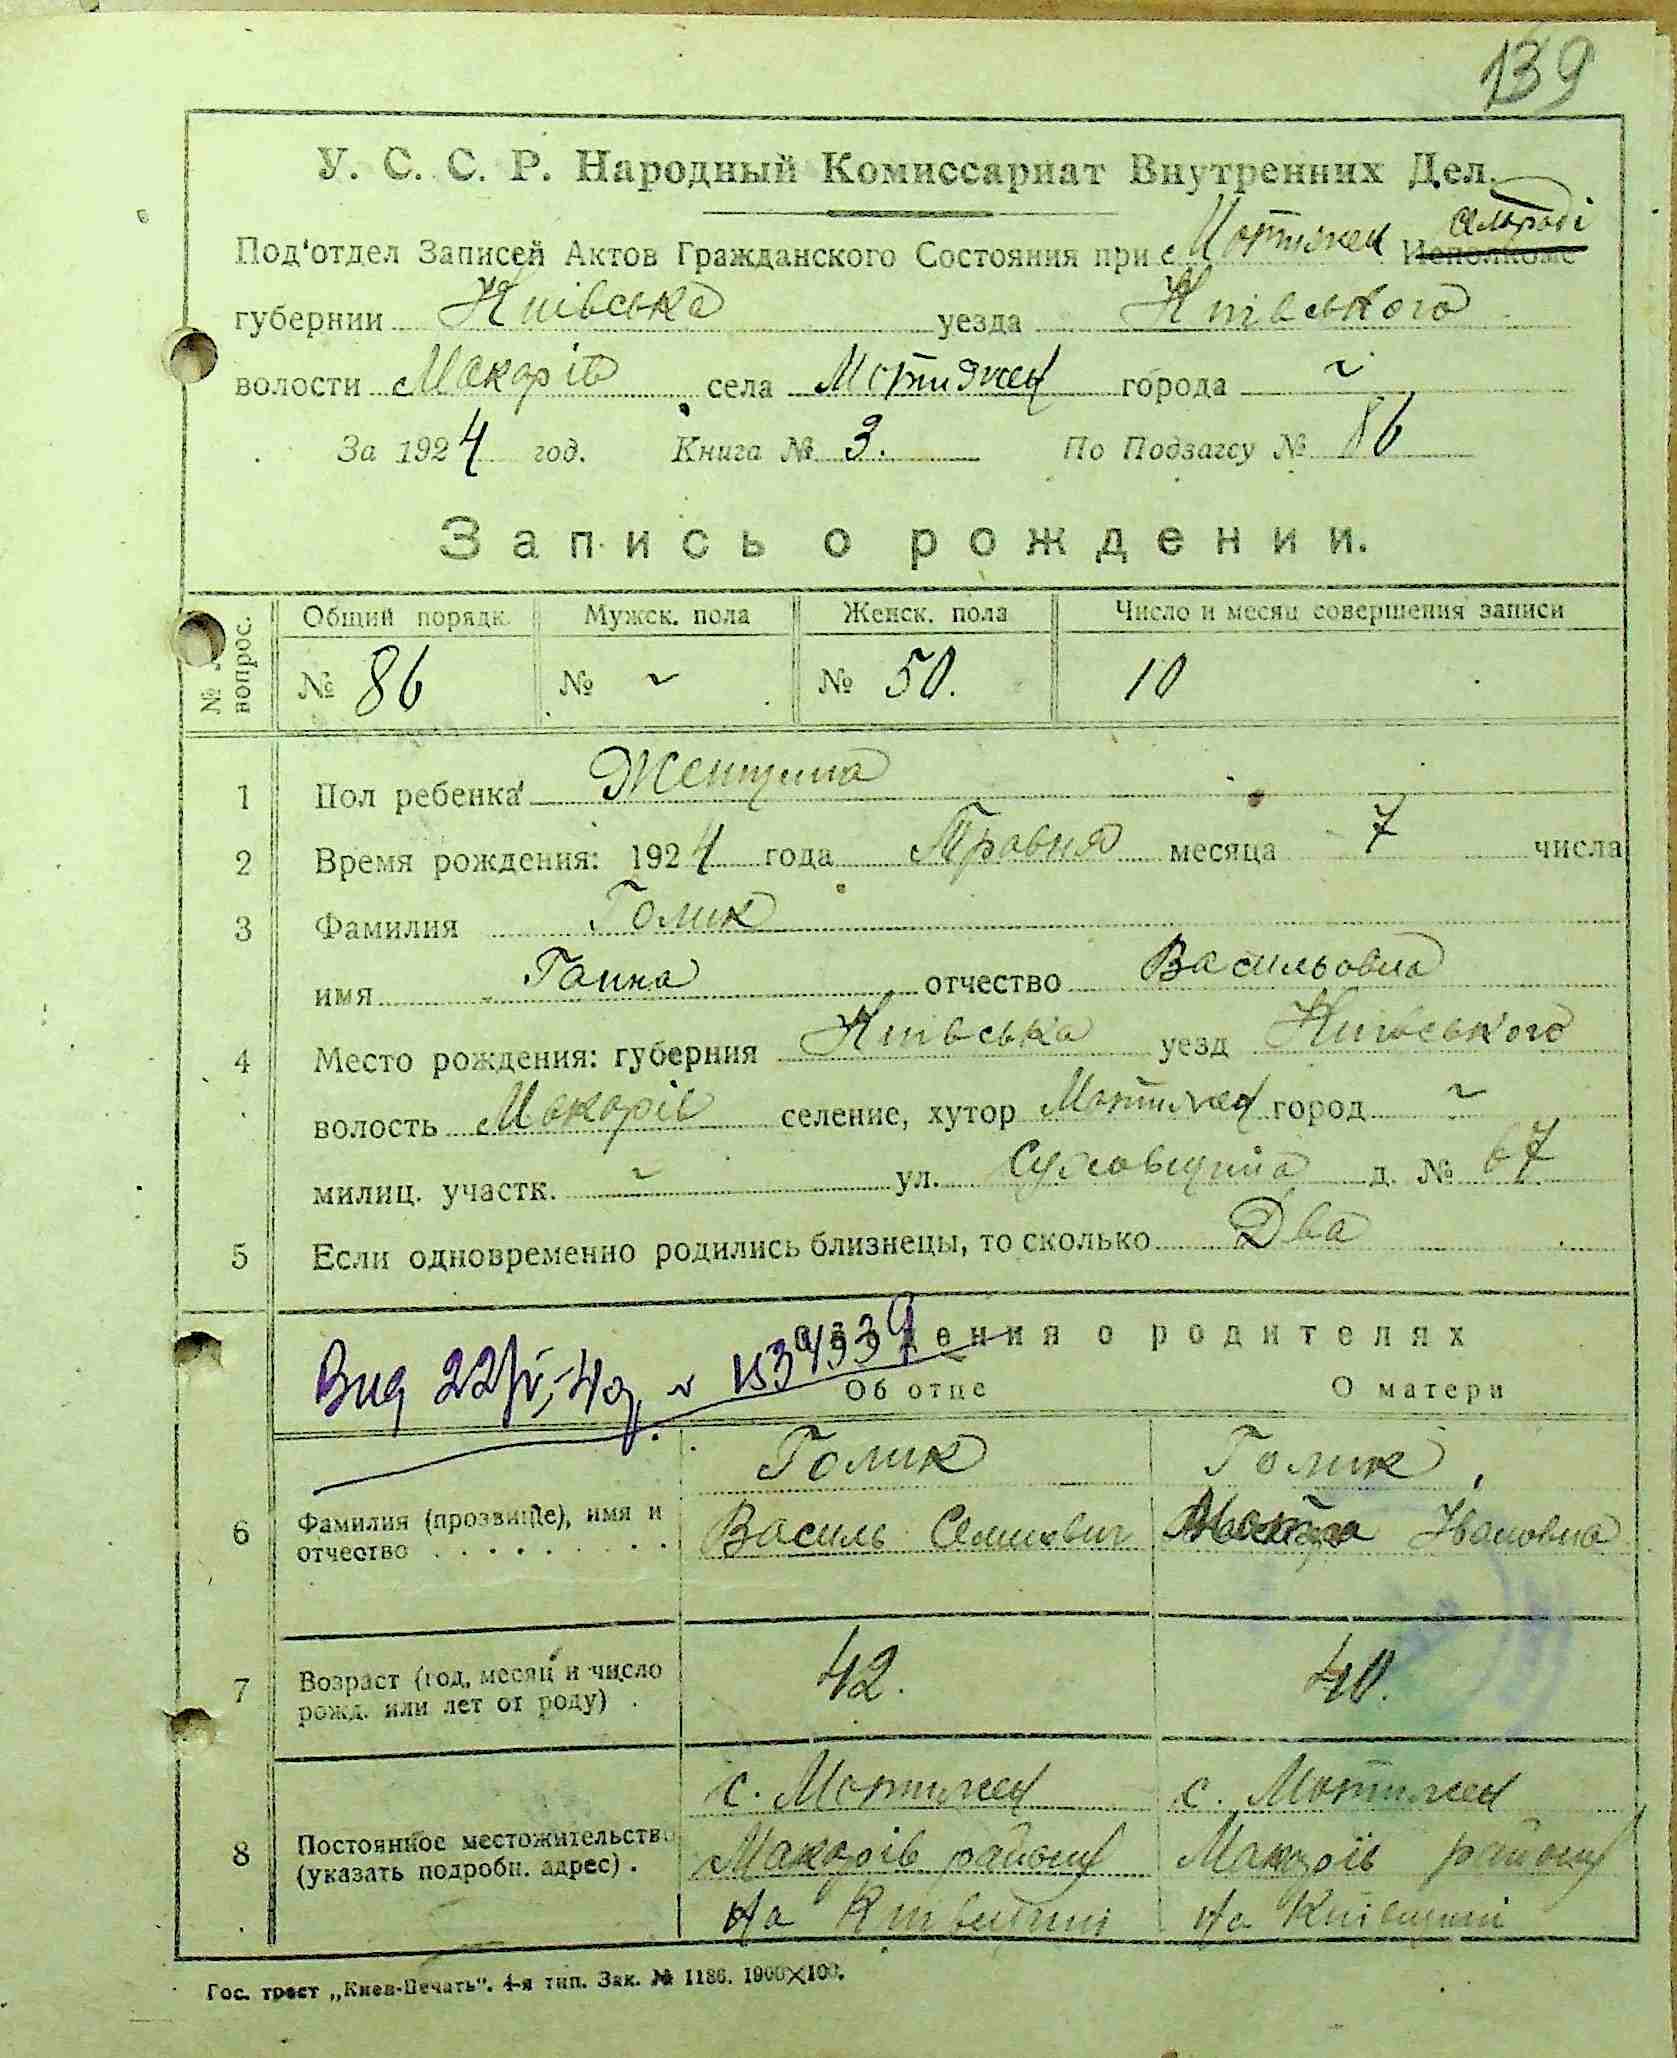 139
У. С. С. Р. Народный Комиссариат Внутренних Дел.
Под'отдел Записей Актов Гражданского Состояния при Мотижен Исполкоме сельраді
губернии Київська уезда Київського
волости Макарів села Мотижен города ~
За 1924 год. Книга № 3. По Подзагсу № 86
Запись о рождении.
№ вопрос. Общий порядк. Мужск. пола Женск. пола Число и месяц совершения записи
№ 86 № ~ № 50. 10
1 Пол ребенка Женщина
2 Время рождения: 1924 года Травня месяца 7 числа
3 Фамилия Голик
имя Ганна отчество Васильовна
4 Место рождения: губерния Київська уезд Київського
волость Макарів селение, хутор Мотижен город ~
милиц. участк. ~ ул. д. № 67
5 Если одновременно родились близнецы, то сколько Два
Сведения о родителях
Вид 22/V-4 153939
Об отце О матери
Голик Голик
6 Фамилия (прозвище), имя и Василь Семенович Ивановна
отчество
7 Возраст (год, месяц и число 42. 40.
рожд. или лет от роду)
с. Мотижен с. Мотижен
8 Постоянное местожительство Макарів району Макарів району
(указать подробн. адрес) . на Київщині на Київщині
Гос. трест „Киев-Печать". 4-я тип. Зак. № 1186. 1900×100.